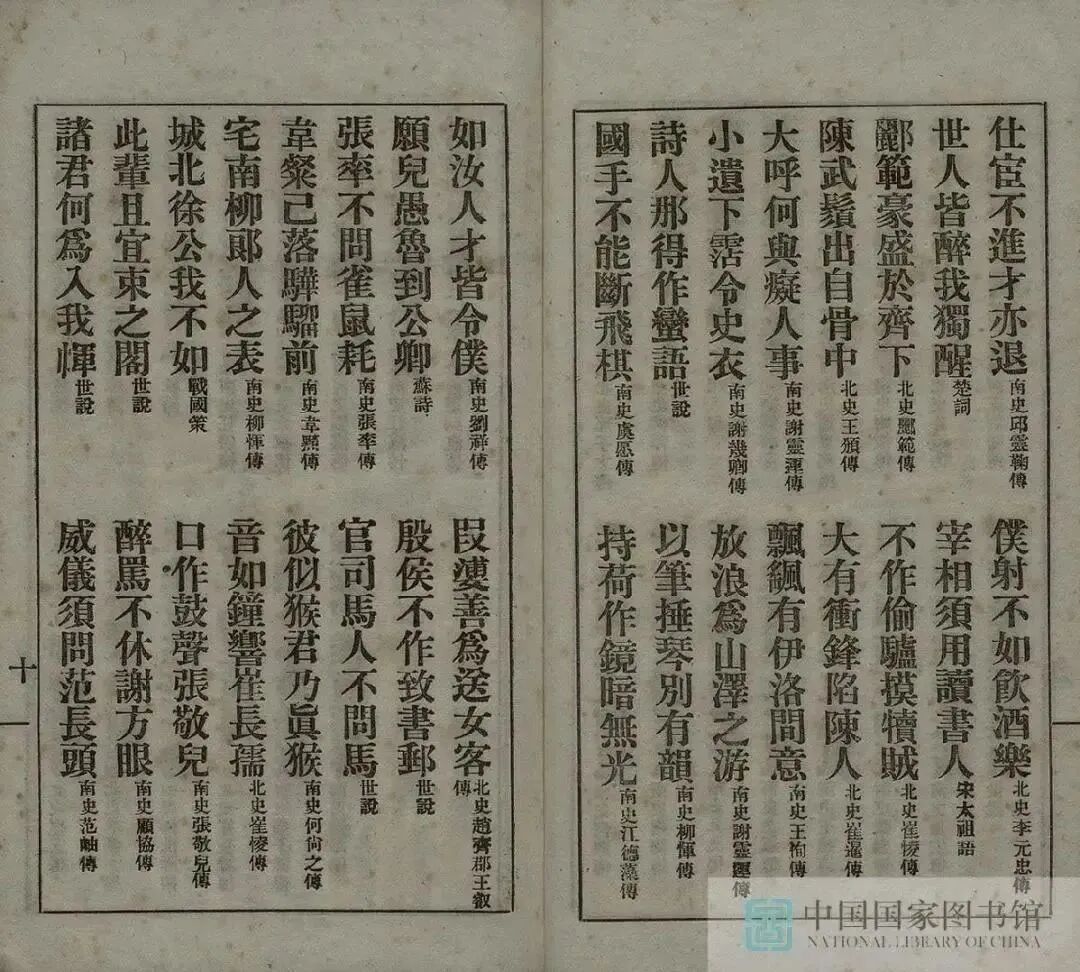 仕宦不進才亦退 南史邱靈鞠傳
僕射不如飲酒樂 北史李元忠傳
世人皆醉我獨醒 楚詞
宰相須用讀書人 宋太祖語
酈範豪盛於齊下 北史酈範傳
不作偷驢摸犢賊 北史崔㥄傳
陳武鬚出自骨中 北史王頒傳
大有衝鋒陷陳人 北史崔暹傳
大呼何與癡人事 南史謝靈運傳
飄颻有伊洛間意 南史王恂傳
小遺下霑令史衣 南史謝幾卿傳
放浪爲山澤之游 南史謝靈運傳
詩人那得作蠻語 世說
以筆捶琴別有韻 南史柳惲傳
國手不能斷飛棋 南史虞愿傳
持荷作鏡暗無光 南史江德藻傳
如汝人才皆令僕 南史劉祥傳
叚婆善爲送女客 北史趙齊郡王叡傳
願兒愚魯到公卿 蘇詩
殷侯不作致書郵 世說
張率不問雀鼠耗 南史張率傳
官司馬人不問馬 世說
韋粲已落驊騮前 南史韋黯傳
彼似猴君乃眞猴 南史何尙之傳
宅南柳郎人之表 南史柳惲傳
音如鐘響崔長孺 北史崔㥄傳
城北徐公我不如 戰國策
口作鼓聲張敬兒 南史張敬兒傳
此輩且宜束之閣 世說
醉罵不休謝方眼 南史顧協傳
諸君何爲入我㡓 世說
威儀須問范長頭 南史范岫傳
十
中国国家图书馆
NATIONAL LIBRARY OF CHINA